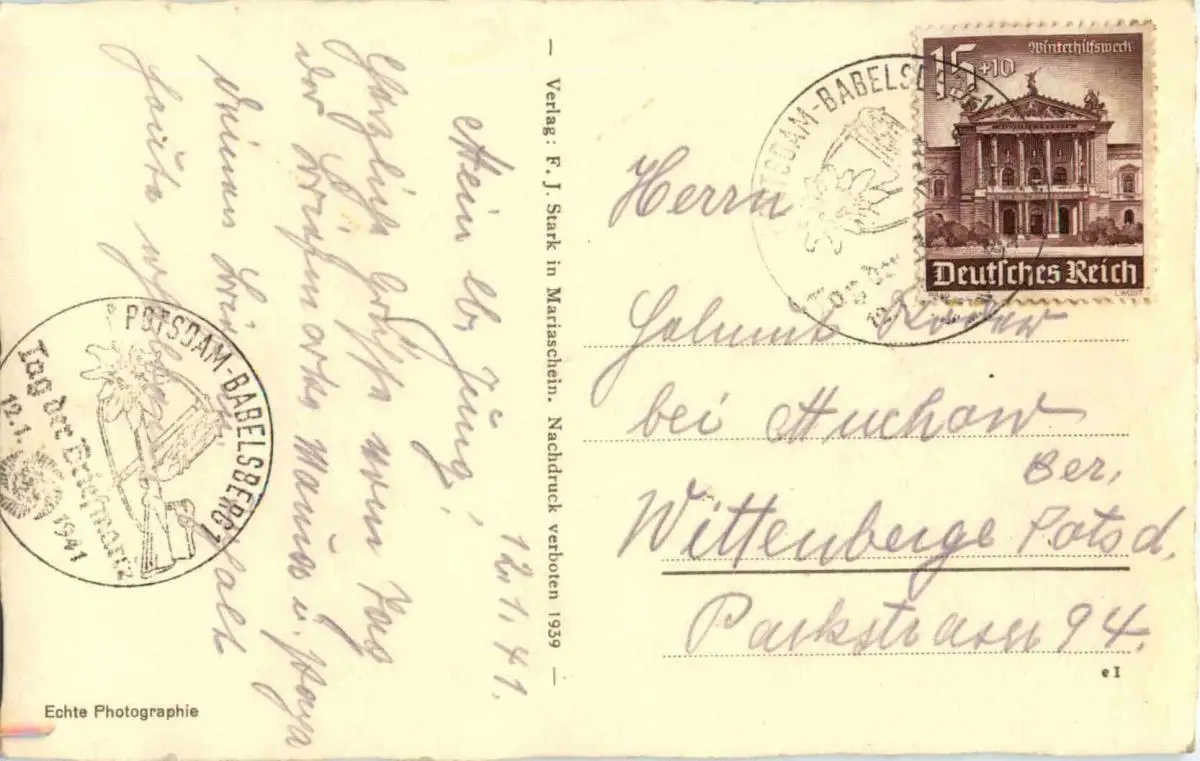 12.1.41.
Mein lb. Jung!
Herzliche Grüße vom Tag
der Briefmarke Mama u. Papa
Deinen Brief erhalt
heute
POTSDAM-BABELSBERG 1
Tag der Briefmarke
12.1.1941
Echte Photographie
— Verlag: F. J. Stark in Mariaschein. Nachdruck verboten 1939 —
Winterhilfswerk
15+10
Deutsches Reich
POTSDAM-BABELSBERG 1
Tag der
12.
Herrn
Helmut
bei Muchow
Ber.
Wittenberge Potsd.
Parkstrasse 94.
e I